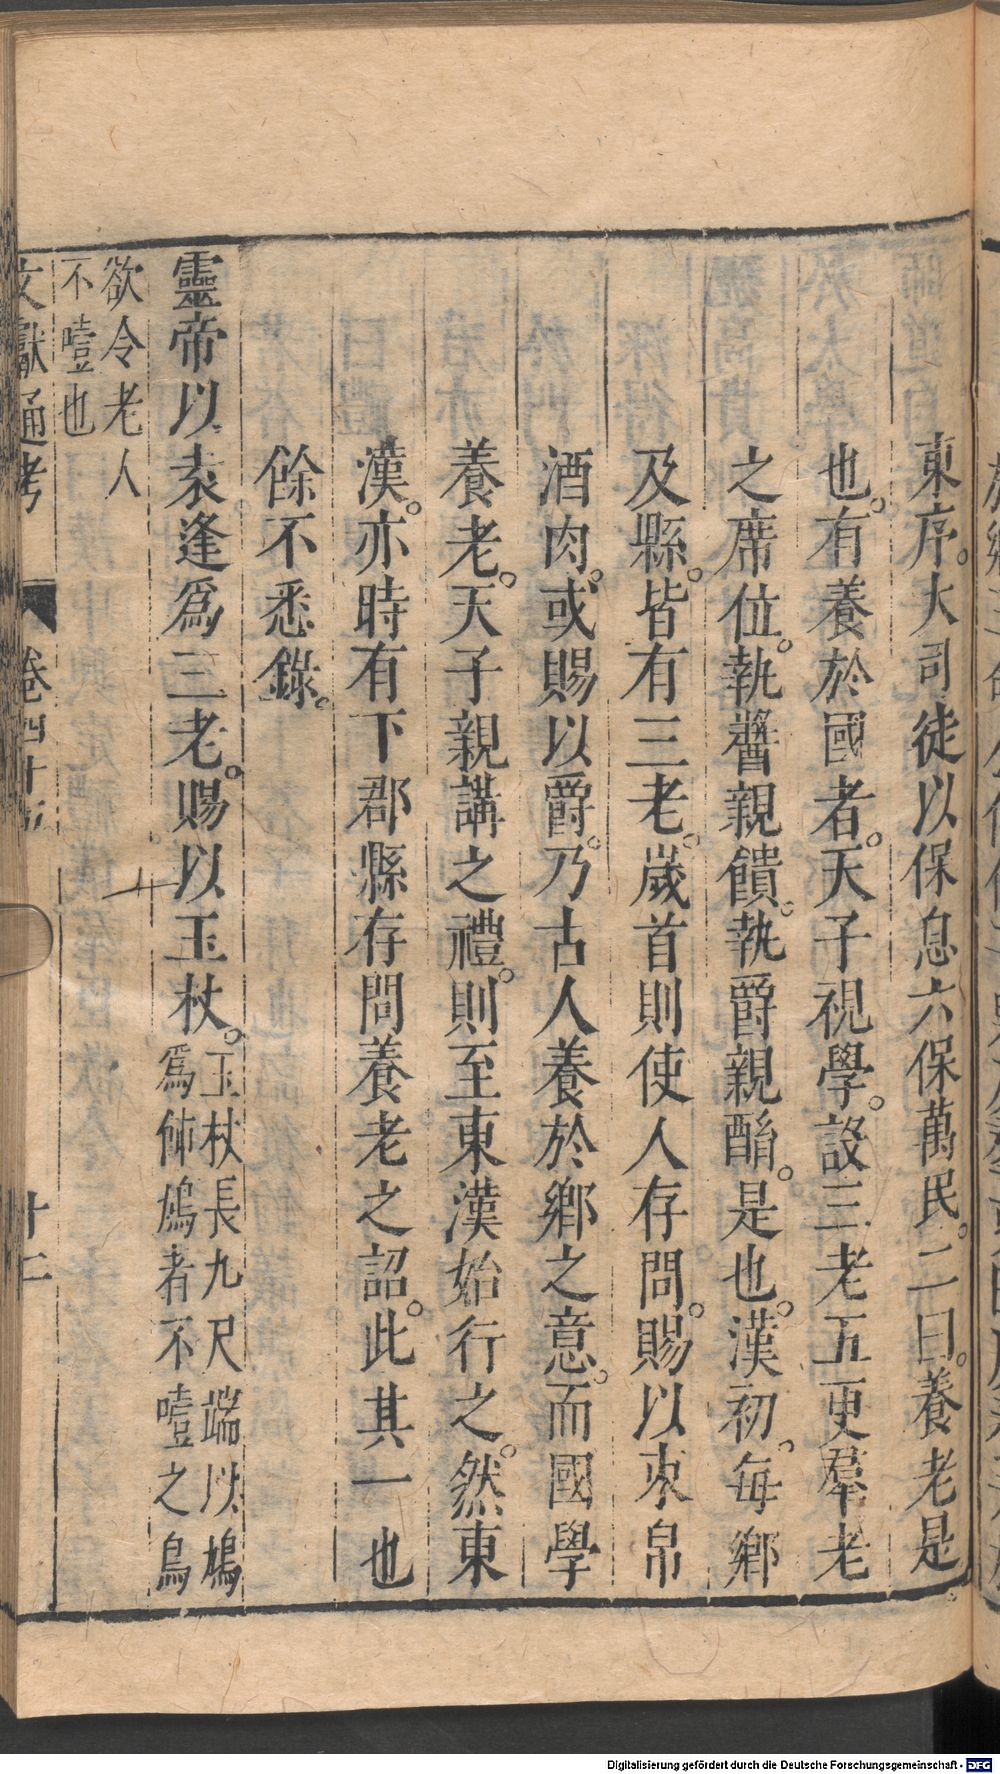 東序。大司徒以保息六保萬民。二曰。養老是
也。有養於國者。天子視學。設三老五更羣老
之席位。執醬親饋。執爵親酳。是也。漢初。每鄉
及縣。皆有三老。嵗首則使人存問。賜以束帛
酒肉。或賜以爵。乃古人養於鄉之意。而國學
養老。天子親講之禮。則至東漢始行之。然東
漢。亦時有下郡縣存問養老之詔。此其一也
餘不悉錄。
靈帝以袁逢爲三老。賜以玉杖。
玉杖長九尺端以鳩
爲飾鳩者不噎之鳥
欲令老人
不噎也
文獻通考
卷四十
十二
Digitalisierung gefördert durch die Deutsche Forschungsgemeinschaft - DFG